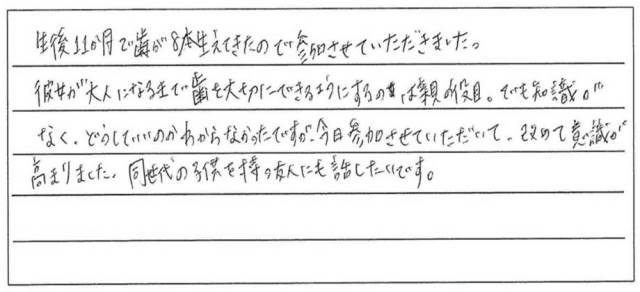 生後11か月で歯が8本生えてきたので参加させていただきました。
彼女が大人になるまで歯を大切にできるようにするのは親の役目。でも知識が
なく、どうしていいのかわからなかったですが、今日参加させていただいて、改めて意識が
高まりました。同世代の子供を持つ友人にも話したいです。